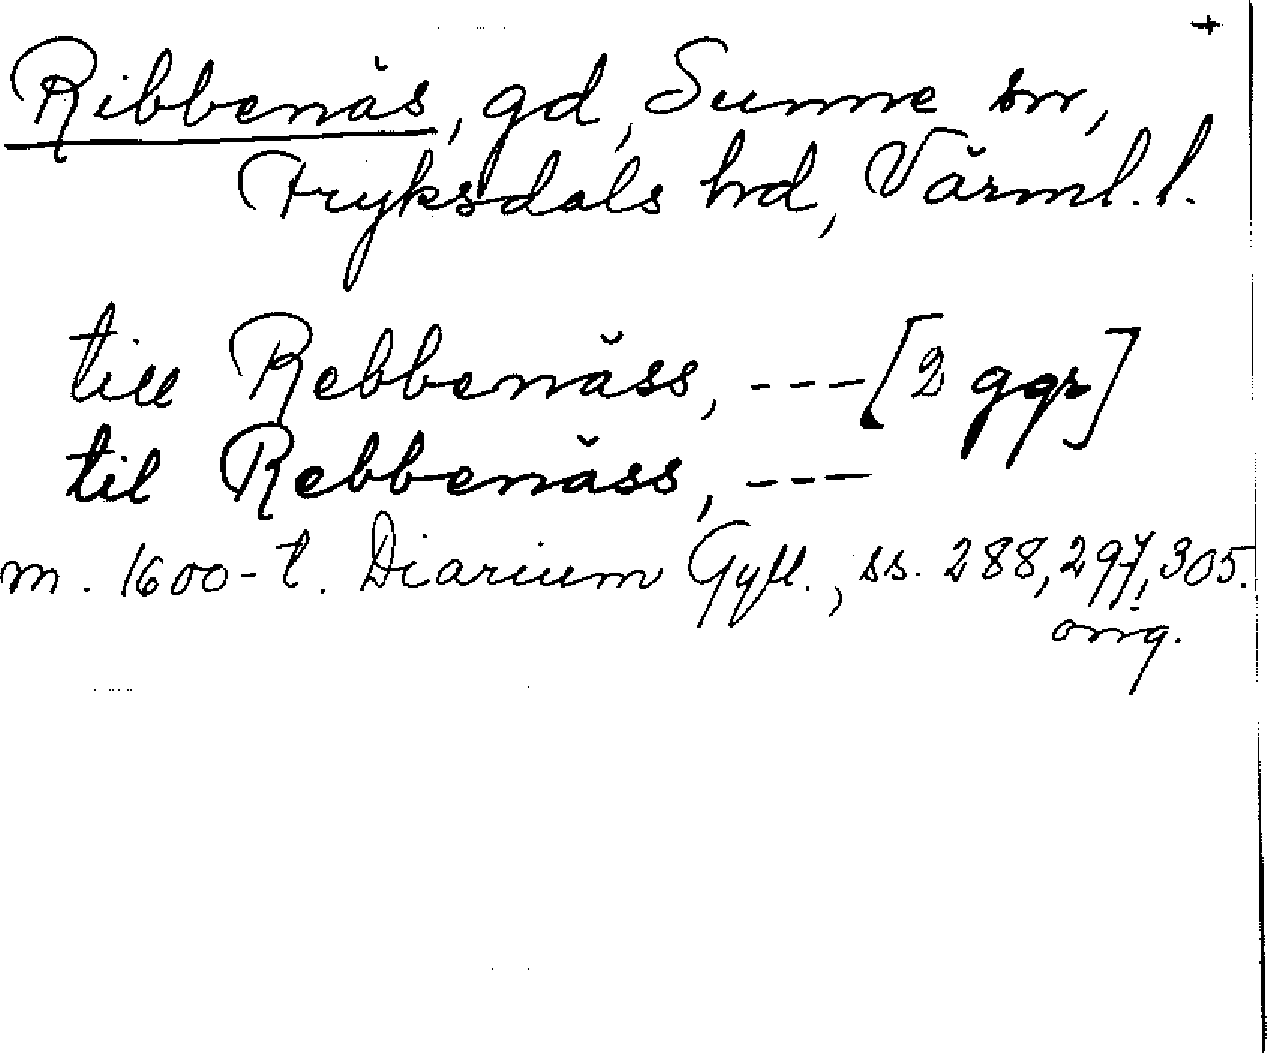 +
Ribbenäs, gd, Sunne sn,
Fryksdals hd, Värml. l.
till Rebbenäss, --- [2 ggr]
til Rebbenäss, ---
m. 1600-t. Diarium Gyll., ss. 288, 297, 305.
orig.